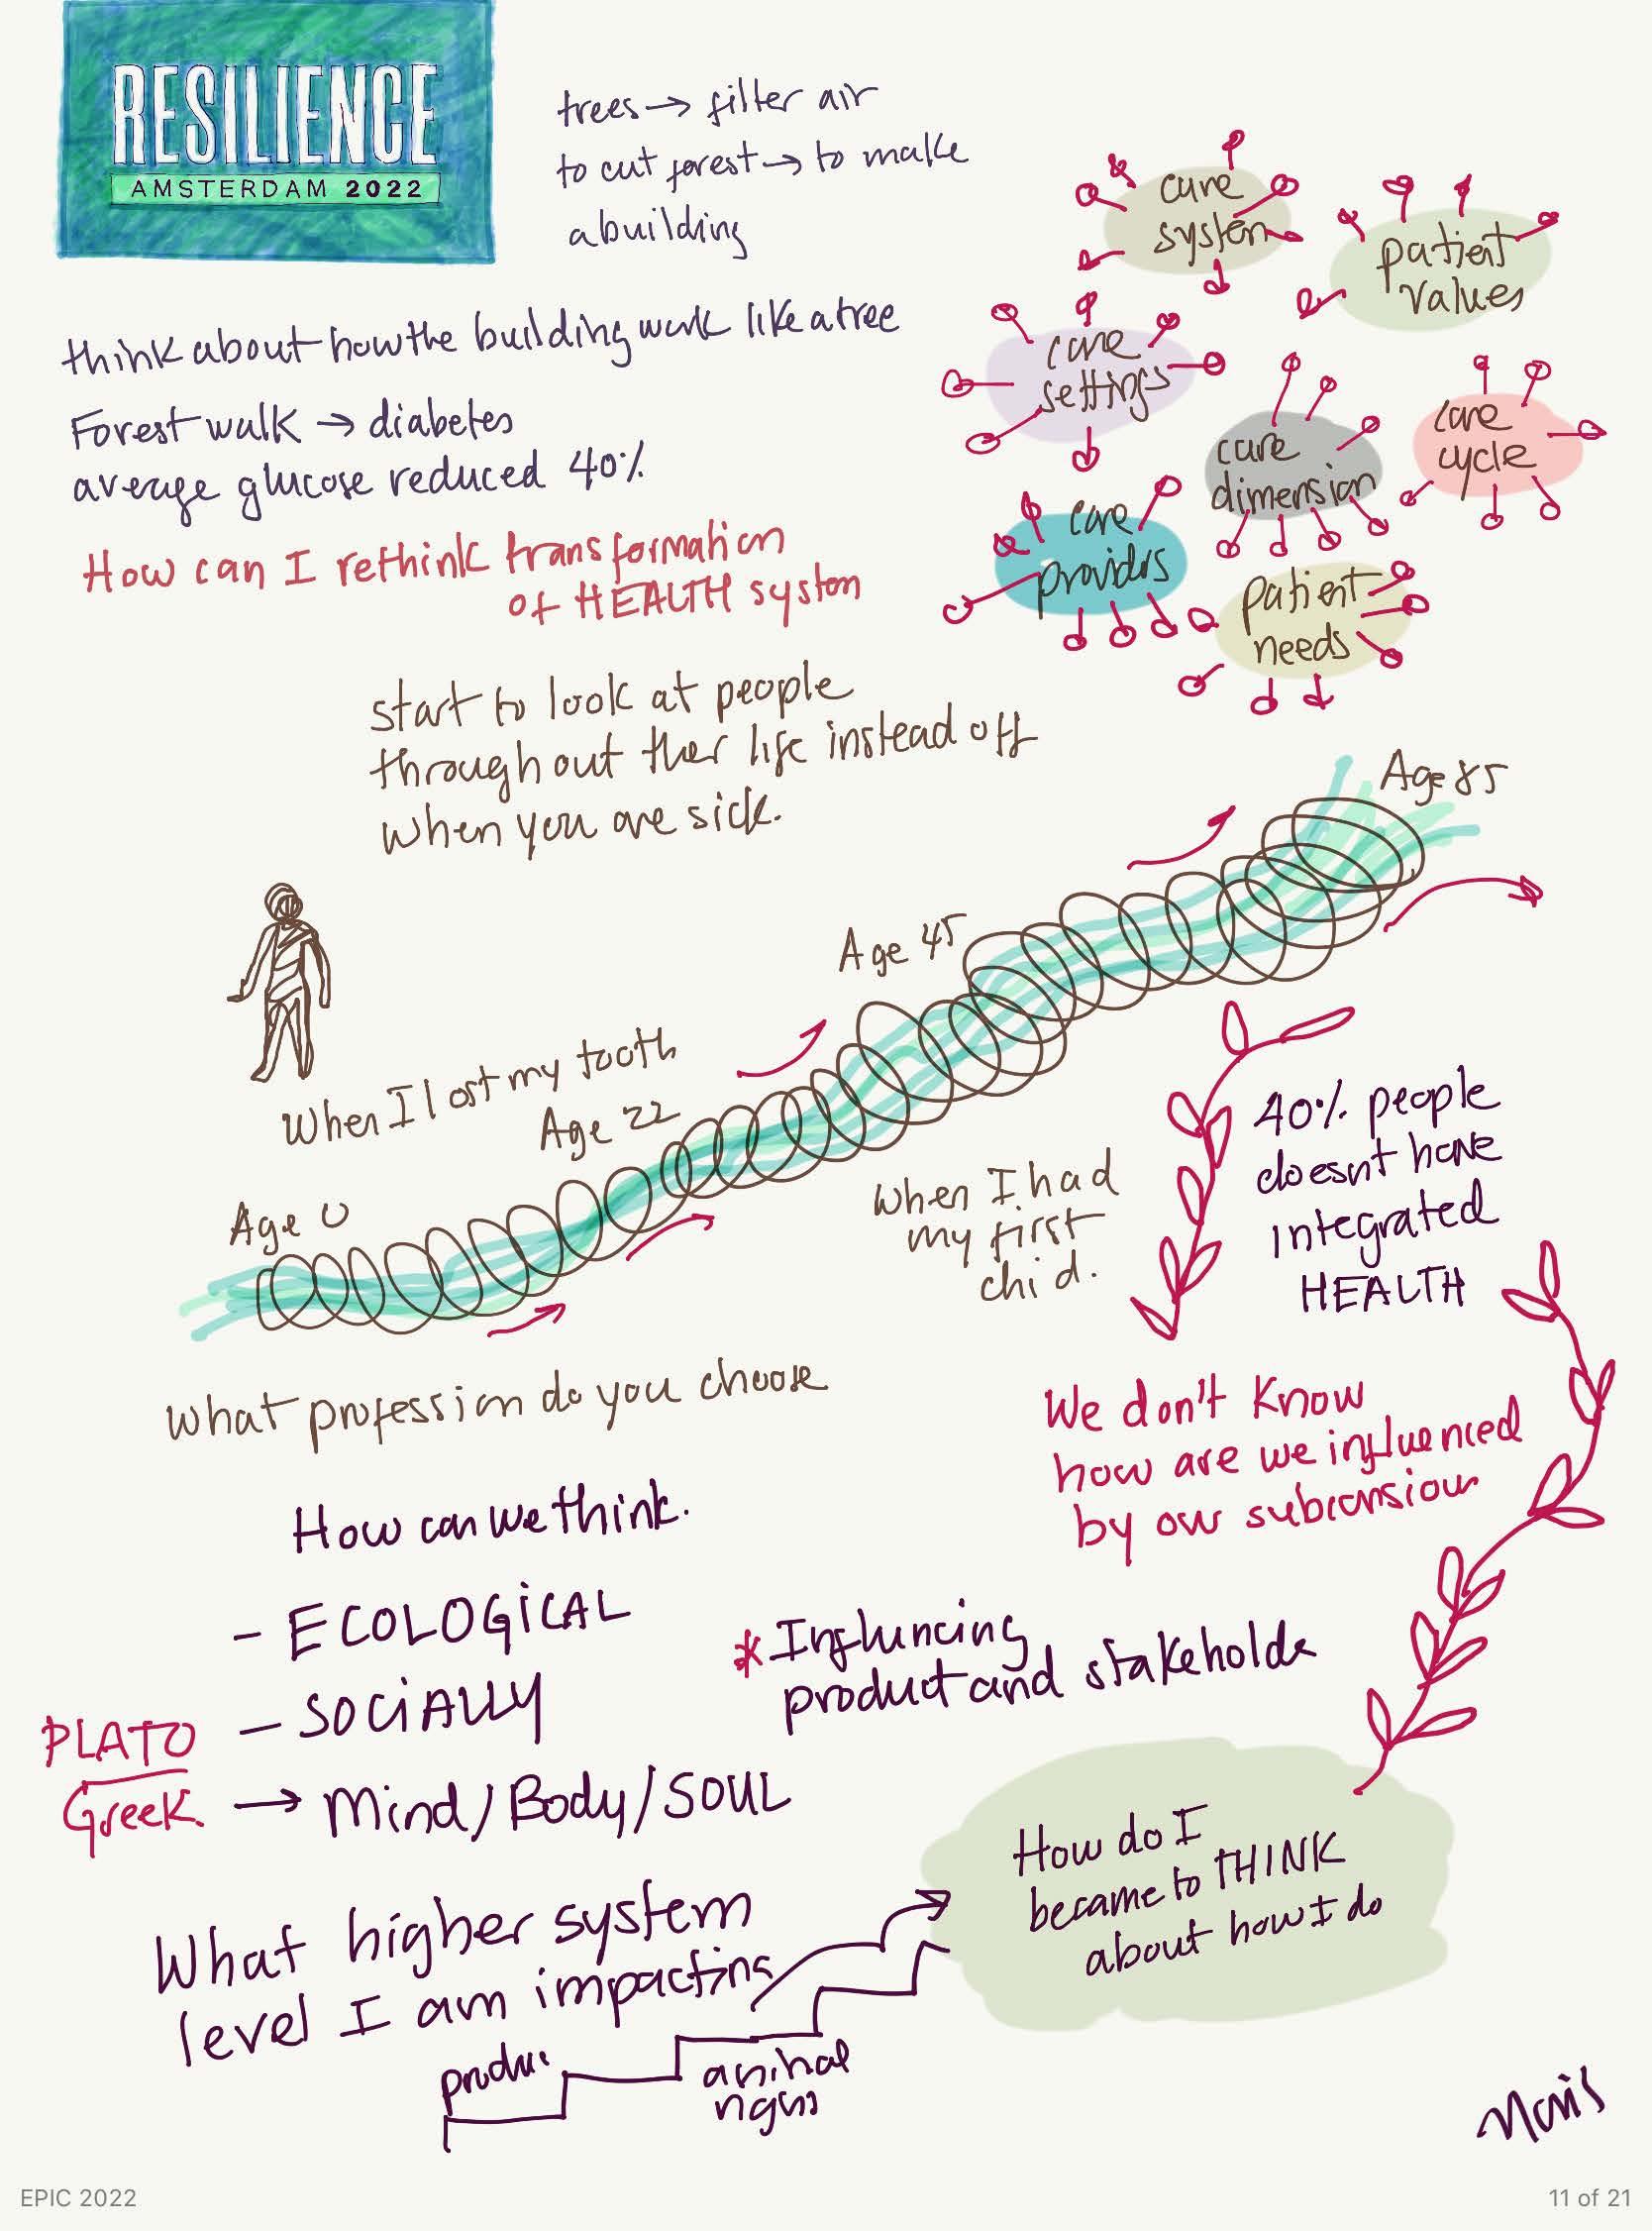 RESILIENCE
AMSTERDAM 2022
trees → filter air
to cut forest → to make
a building
think about how the building work like a tree
Forest walk → diabetes
average glucose reduced 40%
How can I rethink transformation
of HEALTH system
care
system
patient
values
care
settings
care
dimension
care
cycle
care
providrs
patient
needs
start to look at people
throughout ther life instead off
when you are sick.
Age 85
Age 45
When I lost my tooth
Age 22
Age 0
When I had
my first
chi d.
40% people
doesnt have
integrated
HEALTH
What profession do you choose
We don't know
how are we influenced
by our
How can we think.
- ECOLOGICAL
- SOCIALLY
* Influncing
product and stakeholde
PLATO
Greek → Mind/Body/SOUL
How do I
became to THINK
about how I do
What higher system
level I am impacting
produc
animal
EPIC 2022
11 of 21